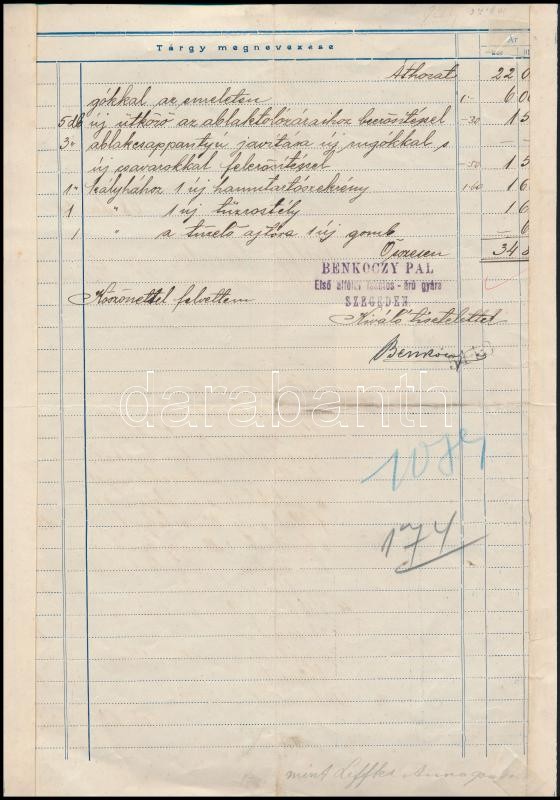 Tárgy megnevezése Ár
Áthozat 22 0
gókkal az emeleten 1·- 6 00
5 db új ütköző az ablaktolózáráshoz beerősítéssel -30 1 5
3 " ablakcsappantyú javítása új rugókkal s
új csavarokkal felerősítéssel -50 1 5
1 " kályhához 1 új hamutartószekrény 1·60 1 6
1 " 1 új tűzrostély 1 6
1 " a tüzelő ajtóra 1 új gomb 6
Összesen 34 8
BENKOCZY PÁL
Első alföldi lakatos-árú gyára
SZEGEDEN.
Köszönettel felvettem
Kiváló tisztelettel
darabanth
174
mint